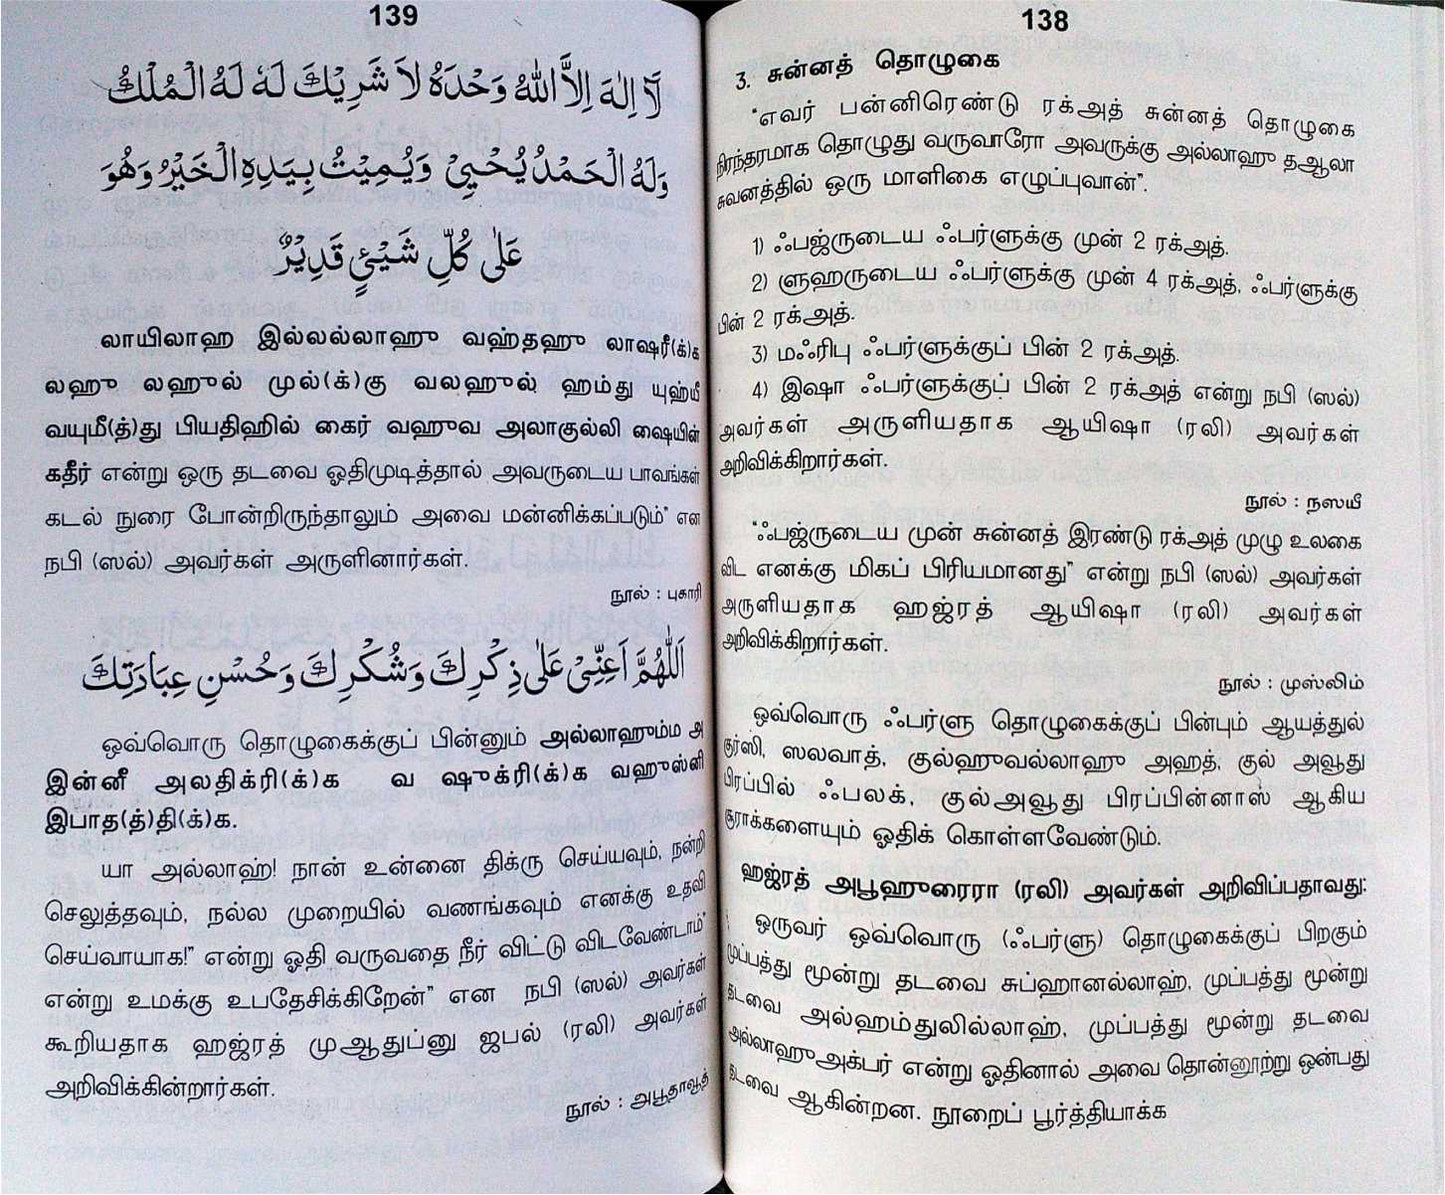 138
3. சுன்னத் தொழுகை
“எவர் பன்னிரெண்டு ரக்அத் சுன்னத் தொழுகை
நிரந்தரமாக தொழுது வருவாரோ அவருக்கு அல்லாஹு தஆலா
சுவனத்தில் ஒரு மாளிகை எழுப்புவான்”.
1) ஃபஜ்ருடைய ஃபர்ளுக்கு முன் 2 ரக்அத்.
2) ளுஹருடைய ஃபர்ளுக்கு முன் 4 ரக்அத், ஃபர்ளுக்கு
பின் 2 ரக்அத்.
3) மஃரிபு ஃபர்ளுக்குப் பின் 2 ரக்அத்.
4) இஷா ஃபர்ளுக்குப் பின் 2 ரக்அத் என்று நபி (ஸல்)
அவர்கள் அருளியதாக ஆயிஷா (ரலி) அவர்கள்
அறிவிக்கிறார்கள்.
நூல் : நஸயீ
“ஃபஜ்ருடைய முன் சுன்னத் இரண்டு ரக்அத் முழு உலகை
விட எனக்கு மிகப் பிரியமானது” என்று நபி (ஸல்) அவர்கள்
அருளியதாக ஹஜ்ரத் ஆயிஷா (ரலி) அவர்கள்
அறிவிக்கிறார்கள்.
நூல் : முஸ்லிம்
ஒவ்வொரு ஃபர்ளு தொழுகைக்குப் பின்பும் ஆயத்துல்
குர்ஸி, ஸலவாத், குல்ஹுவல்லாஹு அஹத், குல் அவூது
பிரப்பில் ஃபலக், குல்அவூது பிரப்பின்னாஸ் ஆகிய
சூராக்களையும் ஓதிக் கொள்ளவேண்டும்.
ஹஜ்ரத் அபூஹுரைரா (ரலி) அவர்கள் அறிவிப்பதாவது:
ஒருவர் ஒவ்வொரு (ஃபர்ளு) தொழுகைக்குப் பிறகும்
முப்பத்து மூன்று தடவை சுப்ஹானல்லாஹ், முப்பத்து மூன்று
தடவை அல்ஹம்துலில்லாஹ், முப்பத்து மூன்று தடவை
அல்லாஹுஅக்பர் என்று ஓதினால் அவை தொன்னூற்று ஒன்பது
தடவை ஆகின்றன. நூறைப் பூர்த்தியாக்க
139
لَآ اِلٰهَ اِلاَّ اللهُ وَحْدَهُ لاَ شَرِيْكَ لَهٗ لَهُ الْمُلْكُ
وَلَهُ الْحَمْدُ يُحْيِيْ وَيُمِيْتُ بِيَدِهِ الْخَيْرُ وَهُوَ
عَلٰى كُلِّ شَيْئٍ قَدِيْرٌ
லாயிலாஹ இல்லல்லாஹு வஹ்தஹு லாஷரீ(க்)க
லஹு லஹுல் முல்(க்)கு வலஹுல் ஹம்து யுஹ்யீ
வயுமீ(த்)து பியதிஹில் கைர் வஹுவ அலாகுல்லி ஷையின்
கதீர் என்று ஒரு தடவை ஓதிமுடித்தால் அவருடைய பாவங்கள்
கடல் நுரை போன்றிருந்தாலும் அவை மன்னிக்கப்படும்” என
நபி (ஸல்) அவர்கள் அருளினார்கள்.
நூல் : புகாரி
اَللّٰهُمَّ اَعِنِّىْ عَلٰى ذِكْرِكَ وَشُكْرِكَ وَحُسْنِ عِبَادَتِكَ
ஒவ்வொரு தொழுகைக்குப் பின்னும் அல்லாஹும்ம அ
இன்னீ அலதிக்ரி(க்)க வ ஷுக்ரி(க்)க வஹுஸ்னி
இபாத(த்)தி(க்)க.
யா அல்லாஹ்! நான் உன்னை திக்ரு செய்யவும், நன்றி
செலுத்தவும், நல்ல முறையில் வணங்கவும் எனக்கு உதவி
செய்வாயாக!” என்று ஓதி வருவதை நீர் விட்டு விடவேண்டாம்”
என்று உமக்கு உபதேசிக்கிறேன்” என நபி (ஸல்) அவர்கள்
கூறியதாக ஹஜ்ரத் முஆதுப்னு ஜபல் (ரலி) அவர்கள்
அறிவிக்கின்றார்கள்.
நூல் : அபூதாவூத்